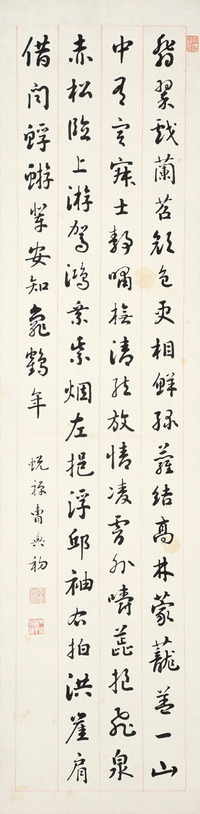 翡翠戲蘭苕顏色更相鮮綠蘿結高林蒙蘢蓋一山
中有冥寂士靜嘯撫清絃放情凌霄外嚼蕊挹飛泉
赤松臨上游駕鴻乘紫烟左挹浮邱袖右拍洪崖肩
借問蜉蝣輩安知龜鶴年
蜕禪曹典初